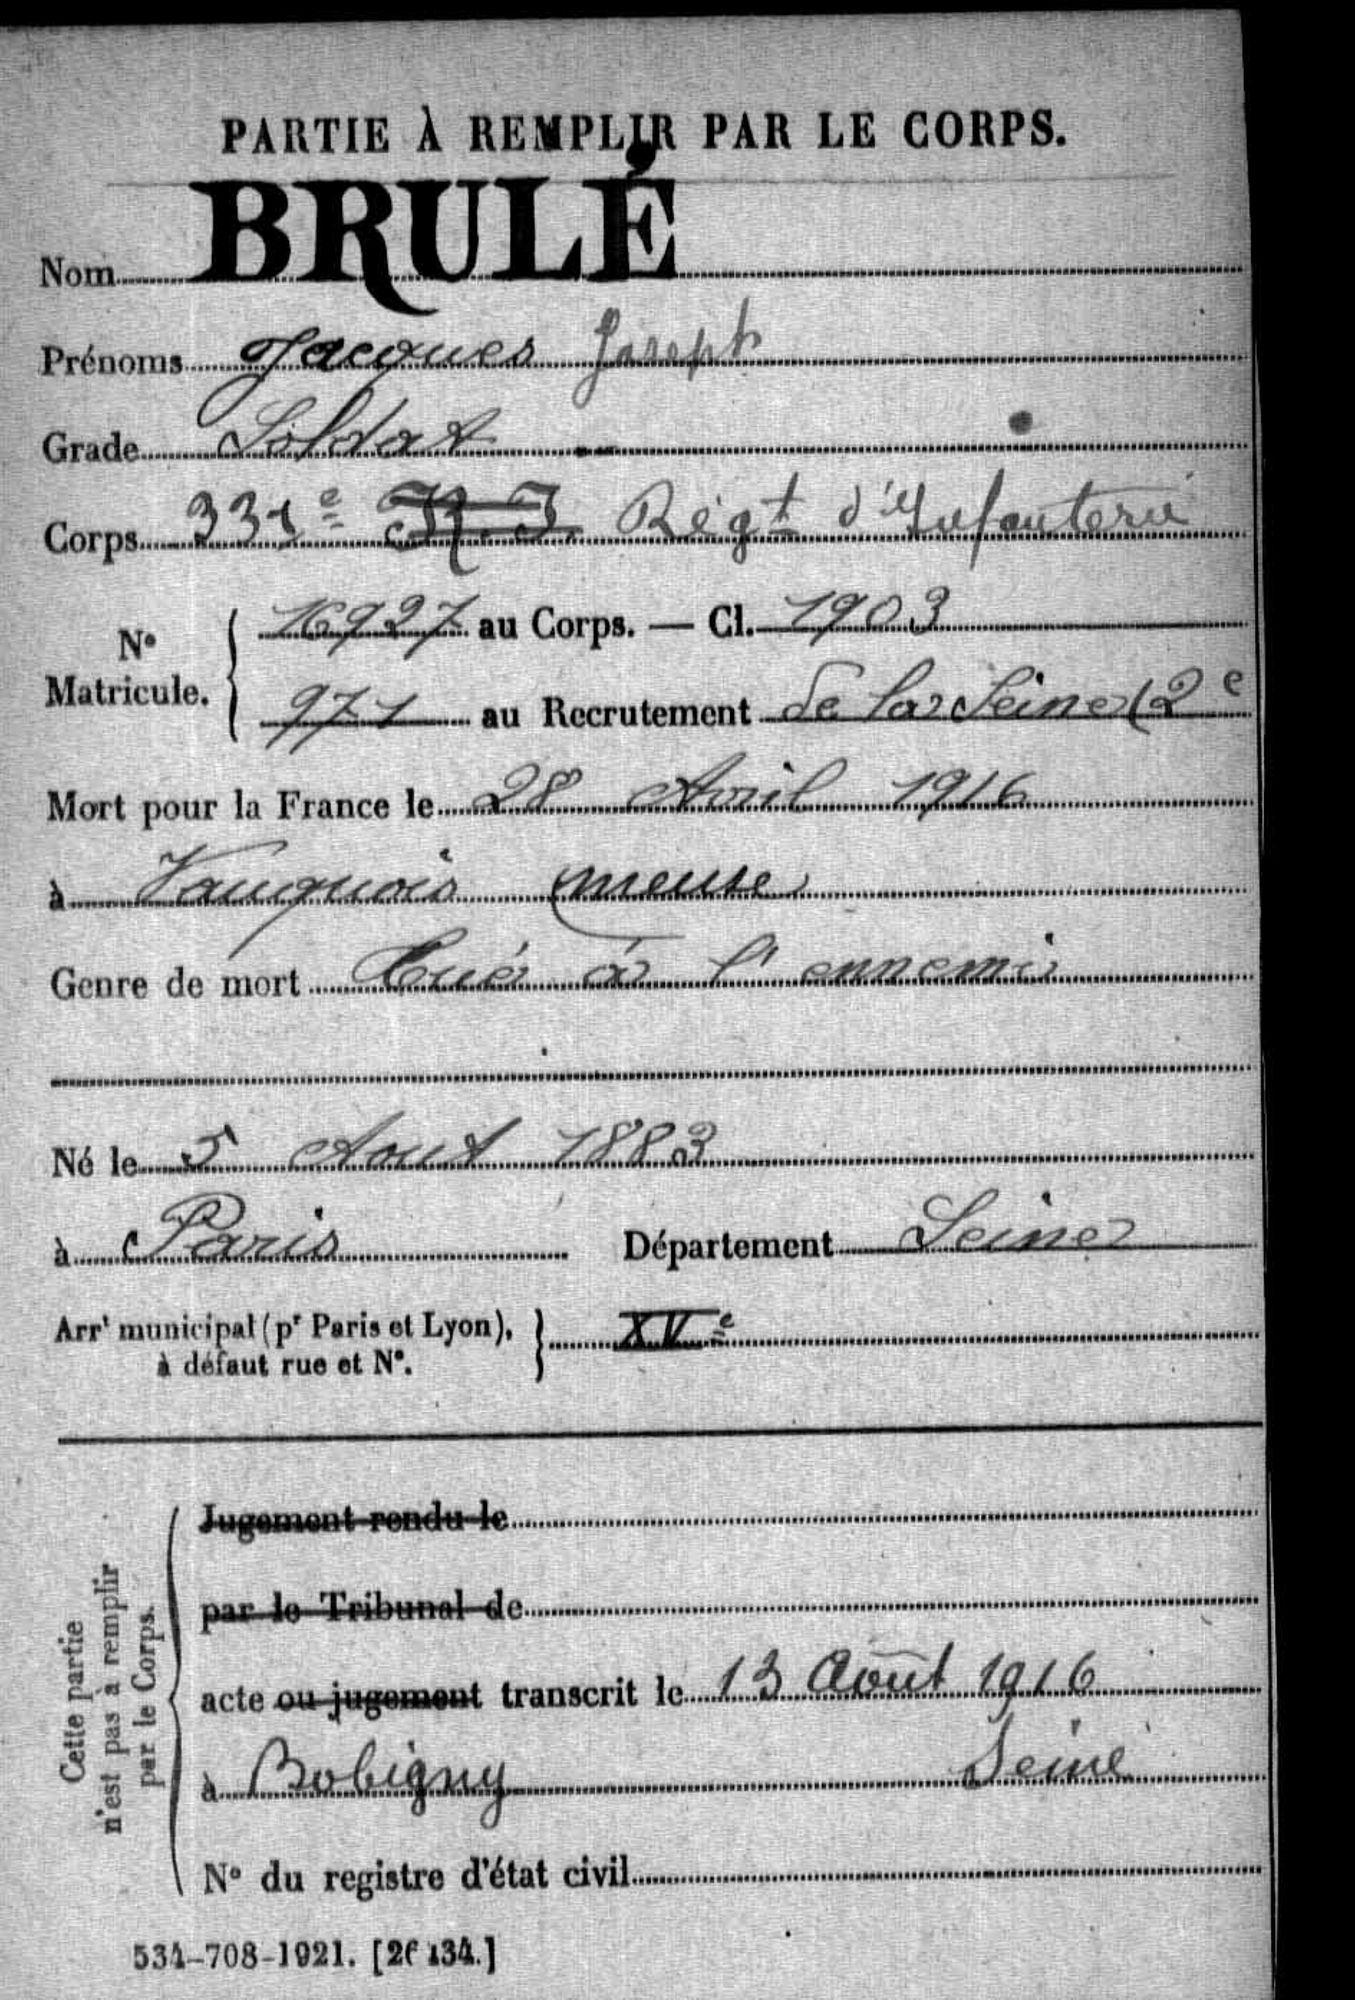 PARTIE À REMPLIR PAR LE CORPS.
Nom BRULÉ
Prénoms Jacques Joseph
Grade Soldat
Corps 331e R.I. Régt d'Infanterie
No Matricule. 16927 au Corps. — Cl. 1903
971 au Recrutement de la Seine (2e
Mort pour la France le 28 Avril 1916
à Vauquois (meuse)
Genre de mort Tué à l'ennemi
Né le 5 Aout 1883
à Paris Département Seine
Arrt municipal (pr Paris et Lyon), XVe
à défaut rue et No.
Cette partie
n'est pas à remplir
par le Corps.
Jugement rendu le
par le Tribunal de
acte ou jugement transcrit le 13 Août 1916
à Bobigny Seine
No du registre d'état civil
534-708-1921. [26134.]